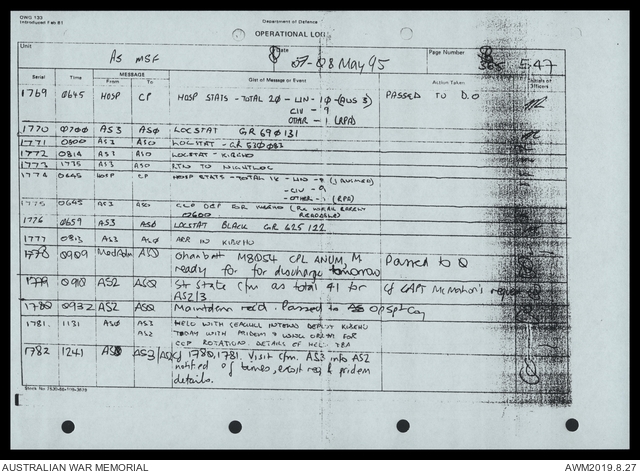 OWG 133
Introduced Feb 91
Department of Defence
OPERATIONAL LOG
Unit
AS MSF
Date
07-08 May 95
Page Number
547
Serial Time MESSAGE From To Gist of Message or Event Action Taken Initials of Officers
1769 0645 HOSP CP HOSP STATS - TOTAL 20 - UN - 10 (AUS 3) PASSED TO D.O
CIV - 9
OTHER - 1 (RPA)
1770 0700 AS3 ASO LOCSTAT GR 690131
1771 0800 AS3 ASO LOCSTAT - GR
1772 0814 AS3 ASO LOCSTAT - KIBEHO
1773 1735 AS3 ASO RTN TO NIGHTLOC
1774 0645 HOSP CP HOSP STATS - TOTAL 18 - UN - 8
- CIV - 9
- OTHER - 1 (RPA)
1775 0645 AS3 ASO CCP DEP FOR
0600
1776 0659 AS3 ASO LOCSTAT BLACK GR 625122
1777 0813 AS3 ASO ARR IN KIBEHO
1778 0909 MedAdm ASO Ghanbatt M8054 CPL ANUM, M. Passed to Q
ready for for discharge tomorrow
1779 0910 AS2 ASO St State cfm as total 41 for Cf CAPT McMahon's request
AS2/3
1780 0932 AS2 ASO Maintdem rec'd. Passed to OpSptCoy
1781. 1131 ASO AS3 HELO WITH SEAGULL INTENDS DEPLOY KIBEHO
AS2 TODAY WITH PRIDEM & WONG ORLEM FOR
CCP ROTATION. DETAILS OF HELO TBA
1782 1241 ASO AS3/AS2 Cf 1780, 1781. Visit cfm. AS3 info AS2
notified of times, escort req & pridem
details.
AUSTRALIAN WAR MEMORIAL
AWM2019.8.27